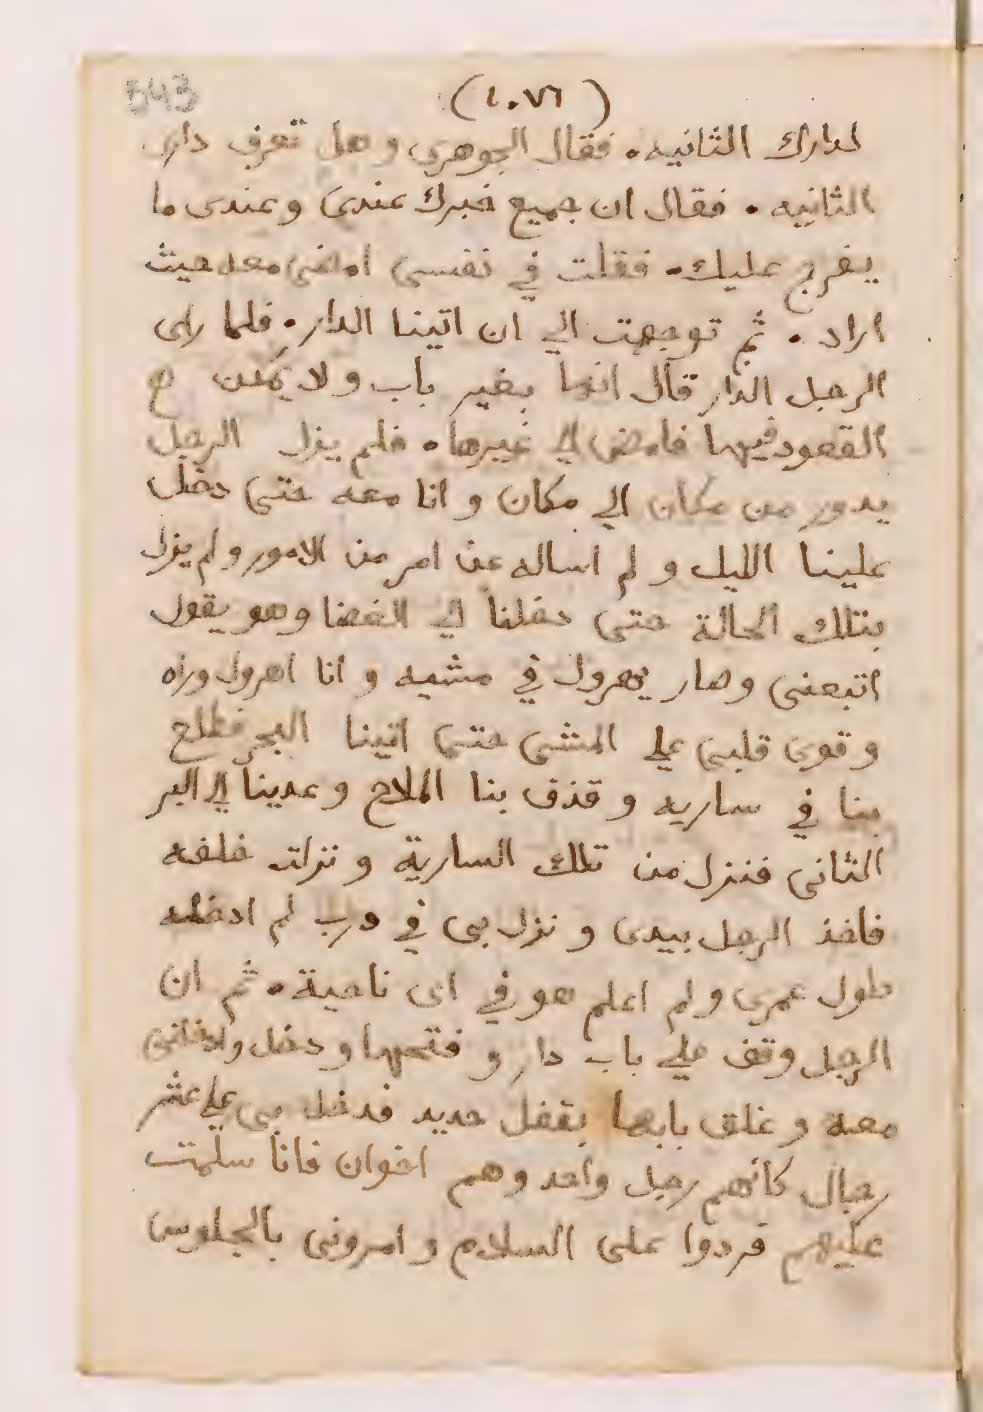 543
(١٠٧٦)
لدارك الثانيه. فقال الجوهري وهل تعرف داري
الثانيه. فقال ان جميع خبرك عندي وعندي ما
يفرج عليك. فقلت في نفسي امضي معه حيث
اراد. ثم توجهت الي ان اتينا الدار. فلما راى
الرجل الدار قال انها بغير باب ولا يمكن
القعود فيها فامض الي غيرها. فلم يزل الرجل
يدور من مكان الي مكان وانا معه حتى دخل
علينا الليل ولم اساله عن امر من الامور ولم يزل
بتلك الحالة حتى دخلنا الي الفضا وهو يقول
اتبعني وصار يهرول في مشيه وانا اهرول وراه
وقوى قلبي علي المشي حتى اتينا البحر فطلع
بنا في ساريه وقذف بنا الملاح وعدينا الي البر
الثاني فنزل من تلك السارية ونزلت خلفه
فاخذ الرجل بيدي ونزل بي في درب لم ادخله
طول عمري ولم اعلم هو في اي ناحية. ثم ان
الرجل وقف علي باب دار وفتحها ودخل وادخلني
معه وغلق بابها بقفل حديد فدخل بي علي عشر
رجال كانهم رجل واحد وهم اخوان فانا سلمت
عليهم فردوا على السلام وامروني بالجلوس